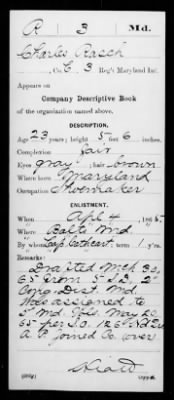 R 3 Md.
Charles Rasch
, Co. C, 3 Reg't Maryland Inf.
Appears on
Company Descriptive Book
of the organization named above.
DESCRIPTION.
Age 23 years; height 5 feet 6 inches.
Complexion fair
Eyes gray; hair brown
Where born Maryland
Occupation Shoemaker
ENLISTMENT.
When Apl 4, 1865.
Where Balto Md.
By whom Capt. Cathcart; term 1 y'rs.
Remarks:
Drafted Mch 30,
65 from 5 S.D. 2"
Cong. Dist. Md.
Was assigned to
5" Md. Vols. May 20
65 per S.O. 126
A.P. joined Co.
Copyist.